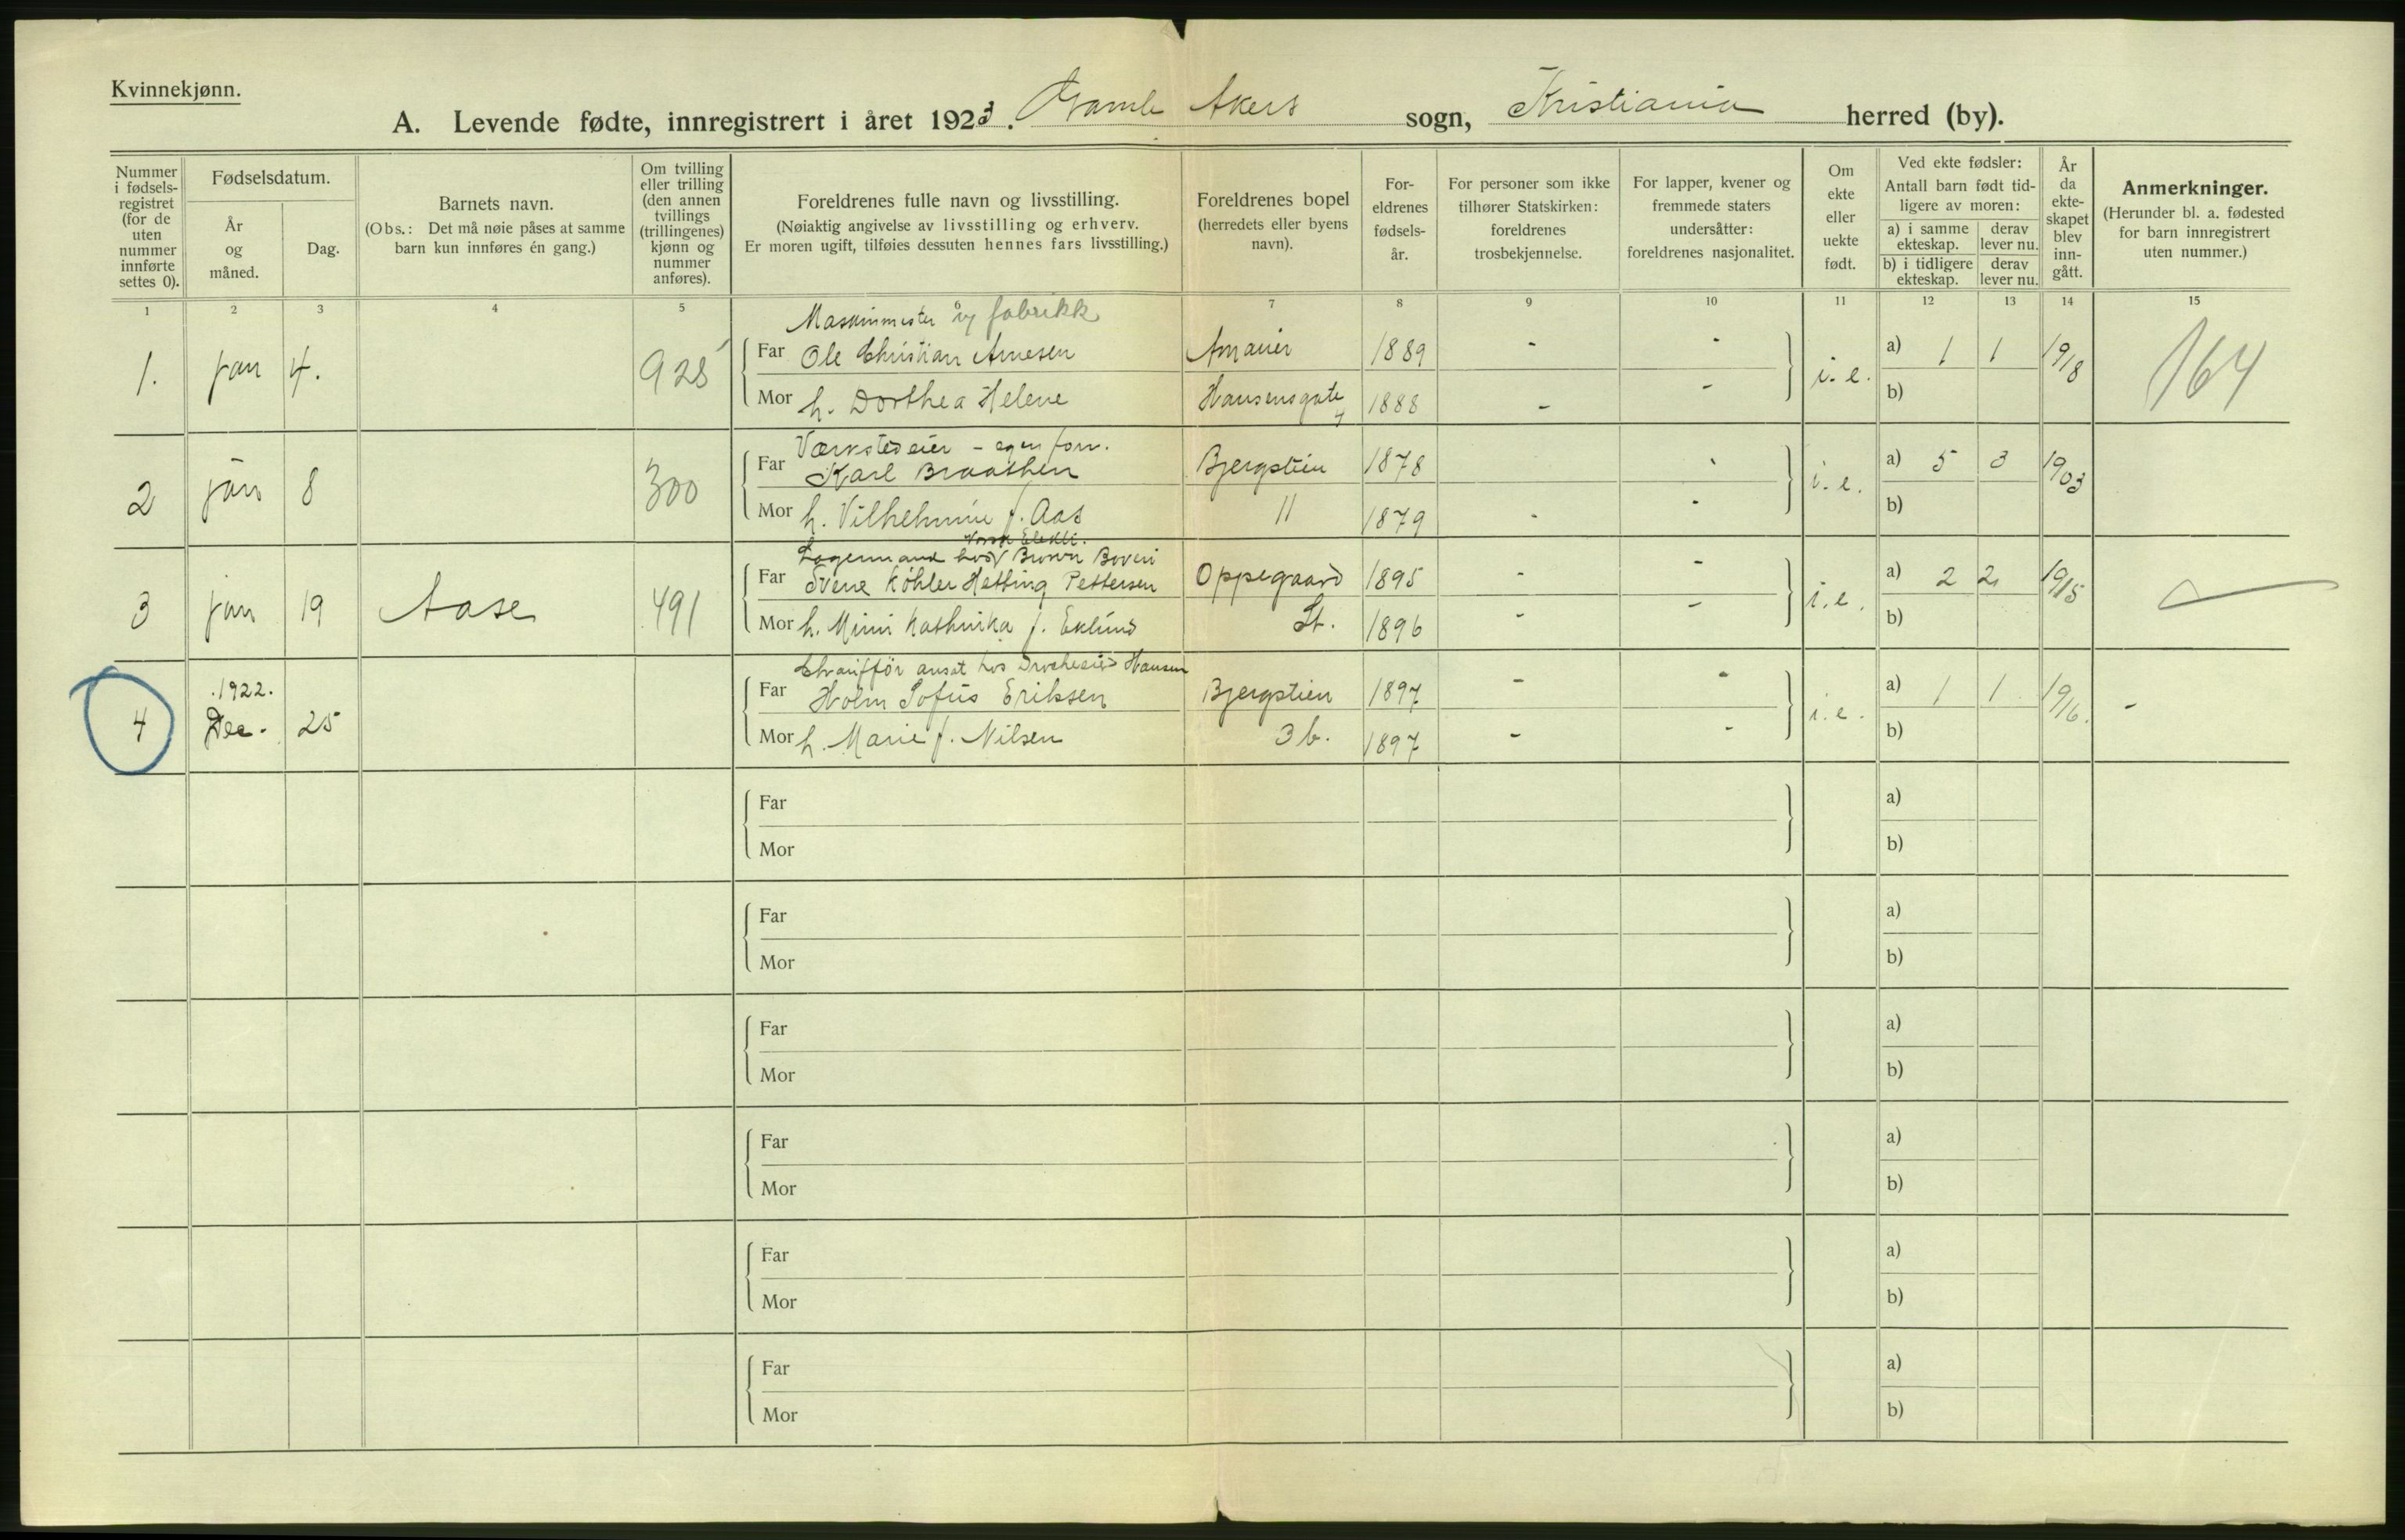 Kvinnekjønn.
A. Levende fødte, innregistrert i året 1923. Gamle Akers sogn, Kristiania herred (by).
Nummer i fødsels-registret (for de uten nummer innførte settes 0).
Fødselsdatum.
År og måned.
Dag.
Barnets navn.
(Obs.: Det må nøie påses at samme barn kun innføres én gang.)
Om tvilling eller trilling (den annen tvillings (trillingenes) kjønn og nummer anføres).
Foreldrenes fulle navn og livsstilling.
(Nøiaktig angivelse av livsstilling og erhverv.
Er moren ugift, tilføies dessuten hennes fars livsstilling.)
Foreldrenes bopel
(herredets eller byens navn).
For-eldrenes fødsels-år.
For personer som ikke tilhører Statskirken: foreldrenes trosbekjennelse.
For lapper, kvener og fremmede staters undersåtter: foreldrenes nasjonalitet.
Om ekte eller uekte født.
Ved ekte fødsler:
Antall barn født tid-ligere av moren:
a) i samme ekteskap.
derav lever nu.
b) i tidligere ekteskap.
derav lever nu.
År da ekte-skapet blev inn-gått.
Anmerkninger.
(Herunder bl. a. fødested for barn innregistrert uten nummer.)
1 2 3 4 5 7 8 9 10 11 12 13 14 15
Maskinmester fabrikk
1. jan 4. 928 Far Ole Christian Arnesen 1889 - - i. e. a) 1 1 19/8 164
Mor h. Dorthea Helene Hansensgate 1888 - - b)
Værkstedeier - egen forr.
2 jan 8 300 Far Karl Braathen Bjergstien 1878 i. e. a) 5 3 1903
Mor h. Vilhelmine f. Aas 11 1879 - - b)
Norsk Elektr.
Lagermand hos Brown Boveri
3 jan 19 Aase 491 Far Svene Köhler Hetting Pettersen Oppegaard 1895 - - i. e. a) 2 2 19/15
Mor h. Mimi Kathinka f. Eklund St. 1896 - - b)
Chaufför ansat hos Drocheeier Hansen
4 1922. Dec. 25 Far Holm Sofus Eriksen Bjergstien 1897 - - i. e. a) 1 1 19/16. -
Mor h. Marie f. Nilsen 3 b. 1897 - - b)
Far a)
Mor b)
Far a)
Mor b)
Far a)
Mor b)
Far a)
Mor b)
Far a)
Mor b)
Far a)
Mor b)